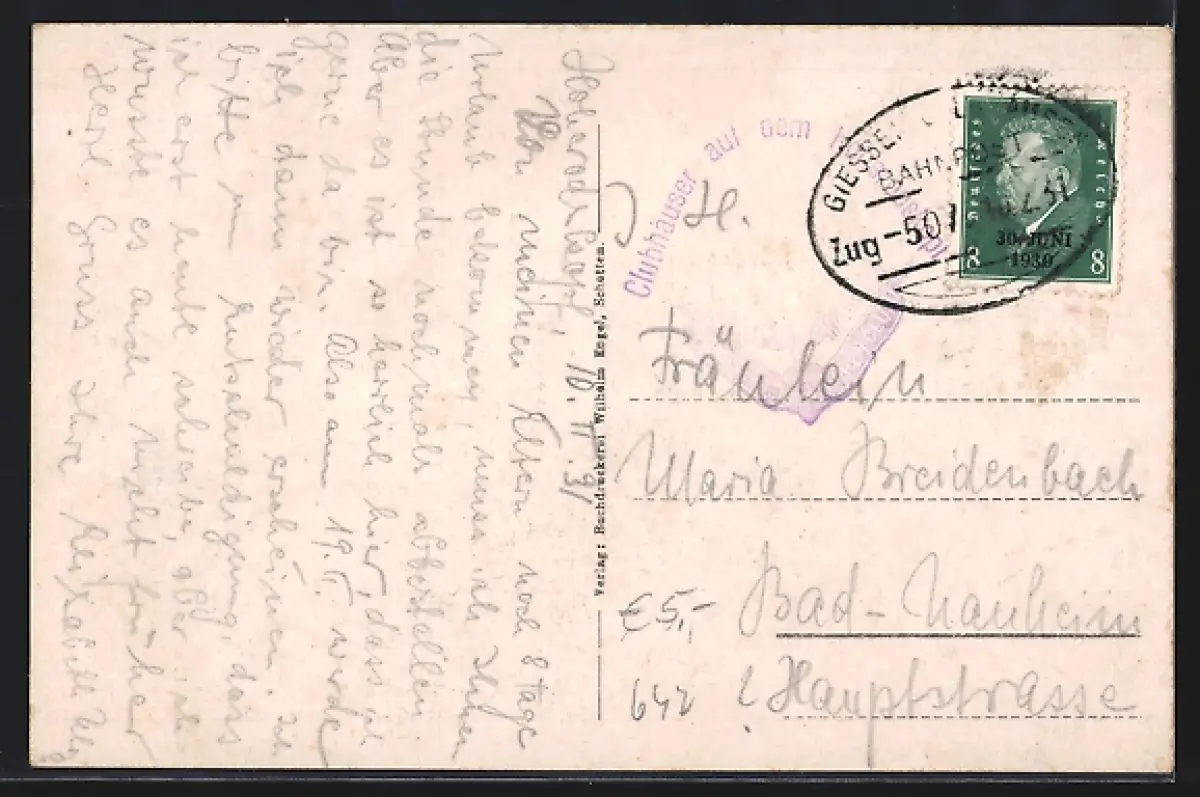 Hoherodskopf, 10. II. 31
Von meinen Eltern noch 8 Tage
Urlaub bekommen, muss ich Ihnen
die Stunde nochmals abbestellen
Aber es ist so herrlich hier, dass ich
gerne da bin. Also am 19. II. werde
ich dann wieder erscheinen. Ich
bitte um Entschuldigung, dass
ich erst heute schreibe, aber ich
wusste es auch nicht früher
Herzl. Gruss Ihre Elisabeth
Verlag: Buchdruckerei Wilhelm Engel, Schotten.
Clubhäuser auf dem
GIESSEN
BAHNPOST
Zug 50
Deutsches Reich
30. JUNI
1930
8 8
J H.
Fräulein
Maria Breidenbach
Bad-Nauheim
Hauptstrasse
€ 5,-
642